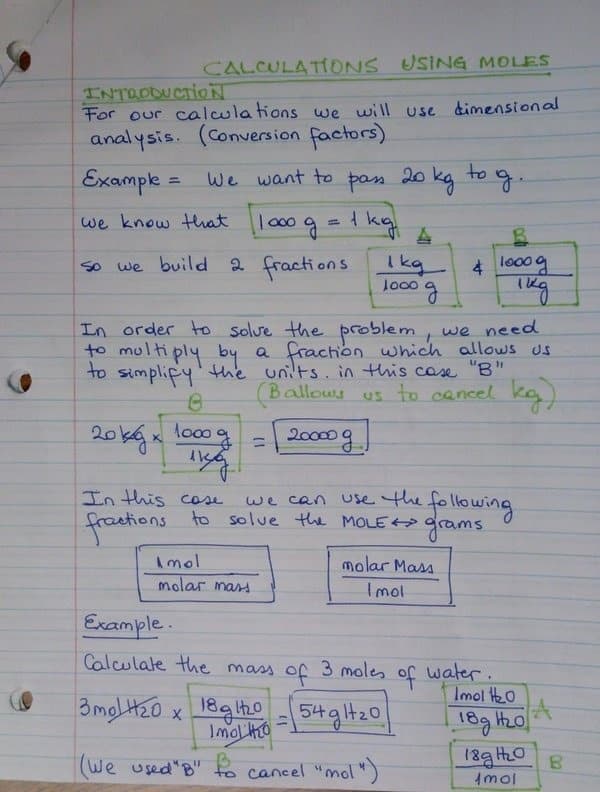 CALCULATIONS USING MOLES
INTRODUCTION
For our calculations we will use dimensional
analysis. (Conversion factors)
Example = We want to pass 20 kg to g.
we know that 1000 g = 1 kg
A B
so we build 2 fractions 1 kg / 1000 g & 1000 g / 1 kg
In order to solve the problem, we need
to multiply by a fraction which allows us
to simplify the units. in this case "B"
(B allows us to cancel kg)
B
20 kg x 1000 g / 1 kg = 20000 g
In this case we can use the following
fractions to solve the MOLE ↔ grams
1 mol / molar mass
molar Mass / 1 mol
Example.
Calculate the mass of 3 moles of water.
3 mol H2O x 18g H2O / 1 mol H2O = 54 g H2O
B
1 mol H2O / 18g H2O A
18g H2O / 1 mol B
(We used "B" to cancel "mol")